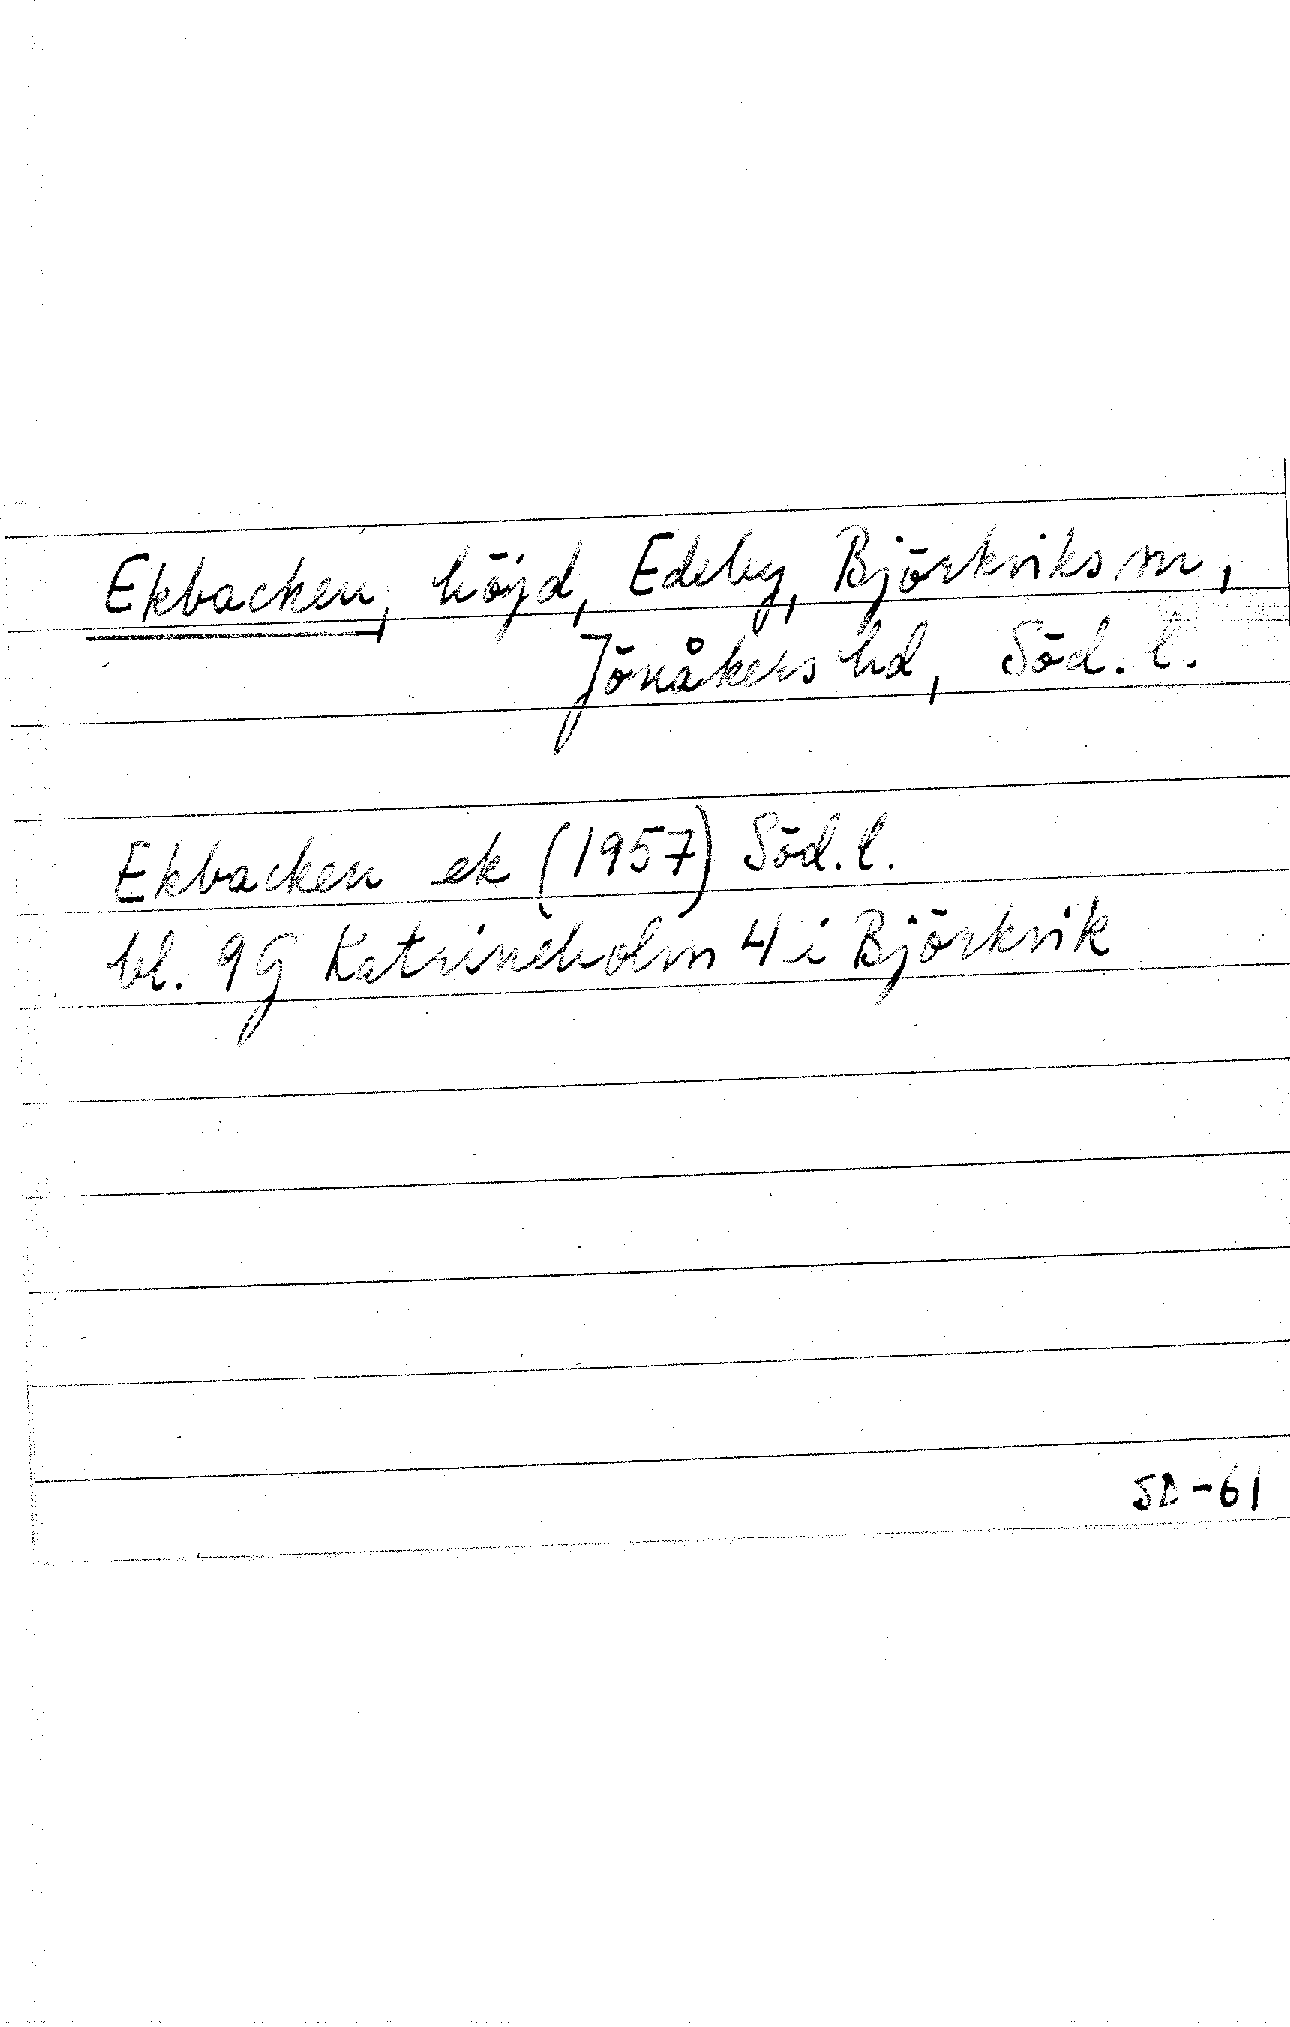 Ekbacken, höjd, Edeby, Björkviks sn,
Jönåkers hd, Söd. l.
Ekbacken ek (1957) Söd. l.
bl. 9G Katrineholm 4 i Björkvik
SD-61